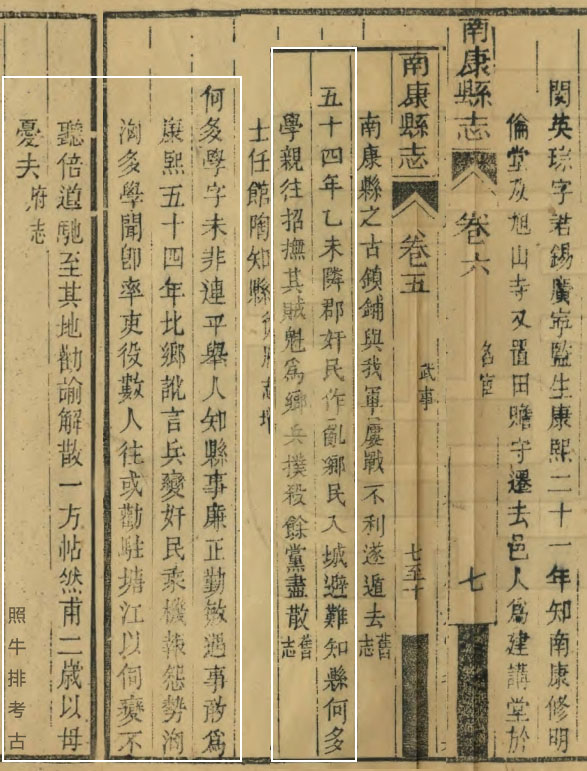 閔英琮字君錫廣寧監生康熙二十一年知南康修明
倫堂及旭山寺又置田贍守遷去邑人爲建講堂於
南康縣志
卷六
名宦
七
南康縣志
卷五
武事
七至十
南康縣之古鎮鋪與我軍屢戰不利遂遁去舊志
五十四年乙未隣郡奸民作亂鄉民入城避難知縣何多
學親往招撫其賊魁爲鄉兵撲殺餘黨盡散舊志
士任館陶知縣
何多學字未非連平舉人知縣事廉正勤敏遇事敢爲
康熙五十四年北鄉訛言兵變奸民乘機報怨勢洶
洶多學聞即率吏役數人往或勸駐塘江以伺變不
聽倍道馳至其地勸諭解散一方帖然甫二歲以母
憂去府志
照牛排考古